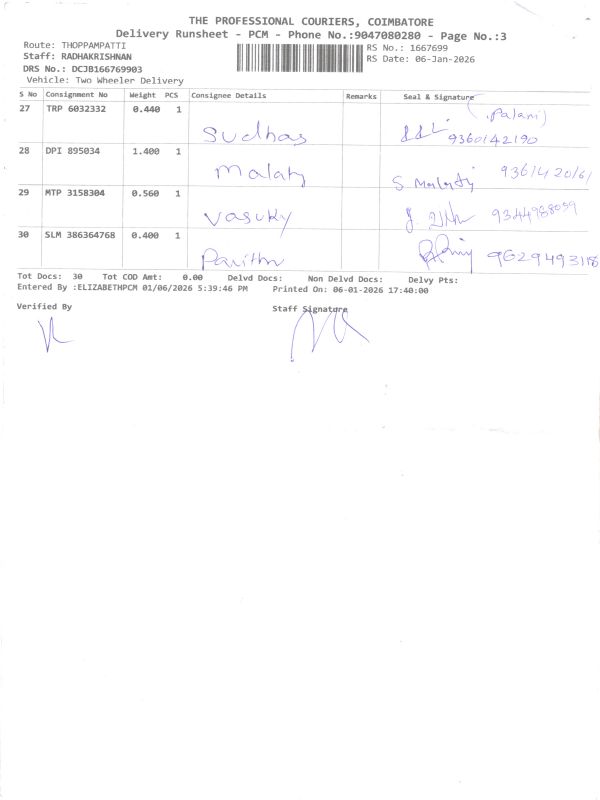 THE PROFESSIONAL COURIERS, COIMBATORE
Delivery Runsheet - PCM - Phone No.:9047080280 - Page No.:3
Route: THOPPAMPATTI
RS No.: 1667699
Staff: RADHAKRISHNAN
RS Date: 06-Jan-2026
DRS No.: DCJB166769903
Vehicle: Two Wheeler Delivery
S No Consignment No Weight PCS Consignee Details Remarks Seal & Signature
27 TRP 6032332 0.440 1 Sudhas (Palani) 9360142190
28 DPI 895034 1.400 1 Malaty S Malaty
29 MTP 3158304 0.560 1 Vasuky 9344988059
30 SLM 386364768 0.400 1 Pavithr 9629493118
Tot Docs: 30 Tot COD Amt: 0.00 Delvd Docs: Non Delvd Docs: Delvy Pts:
Entered By :ELIZABETHPCM 01/06/2026 5:39:46 PM Printed On: 06-01-2026 17:40:00
Verified By Staff Signature